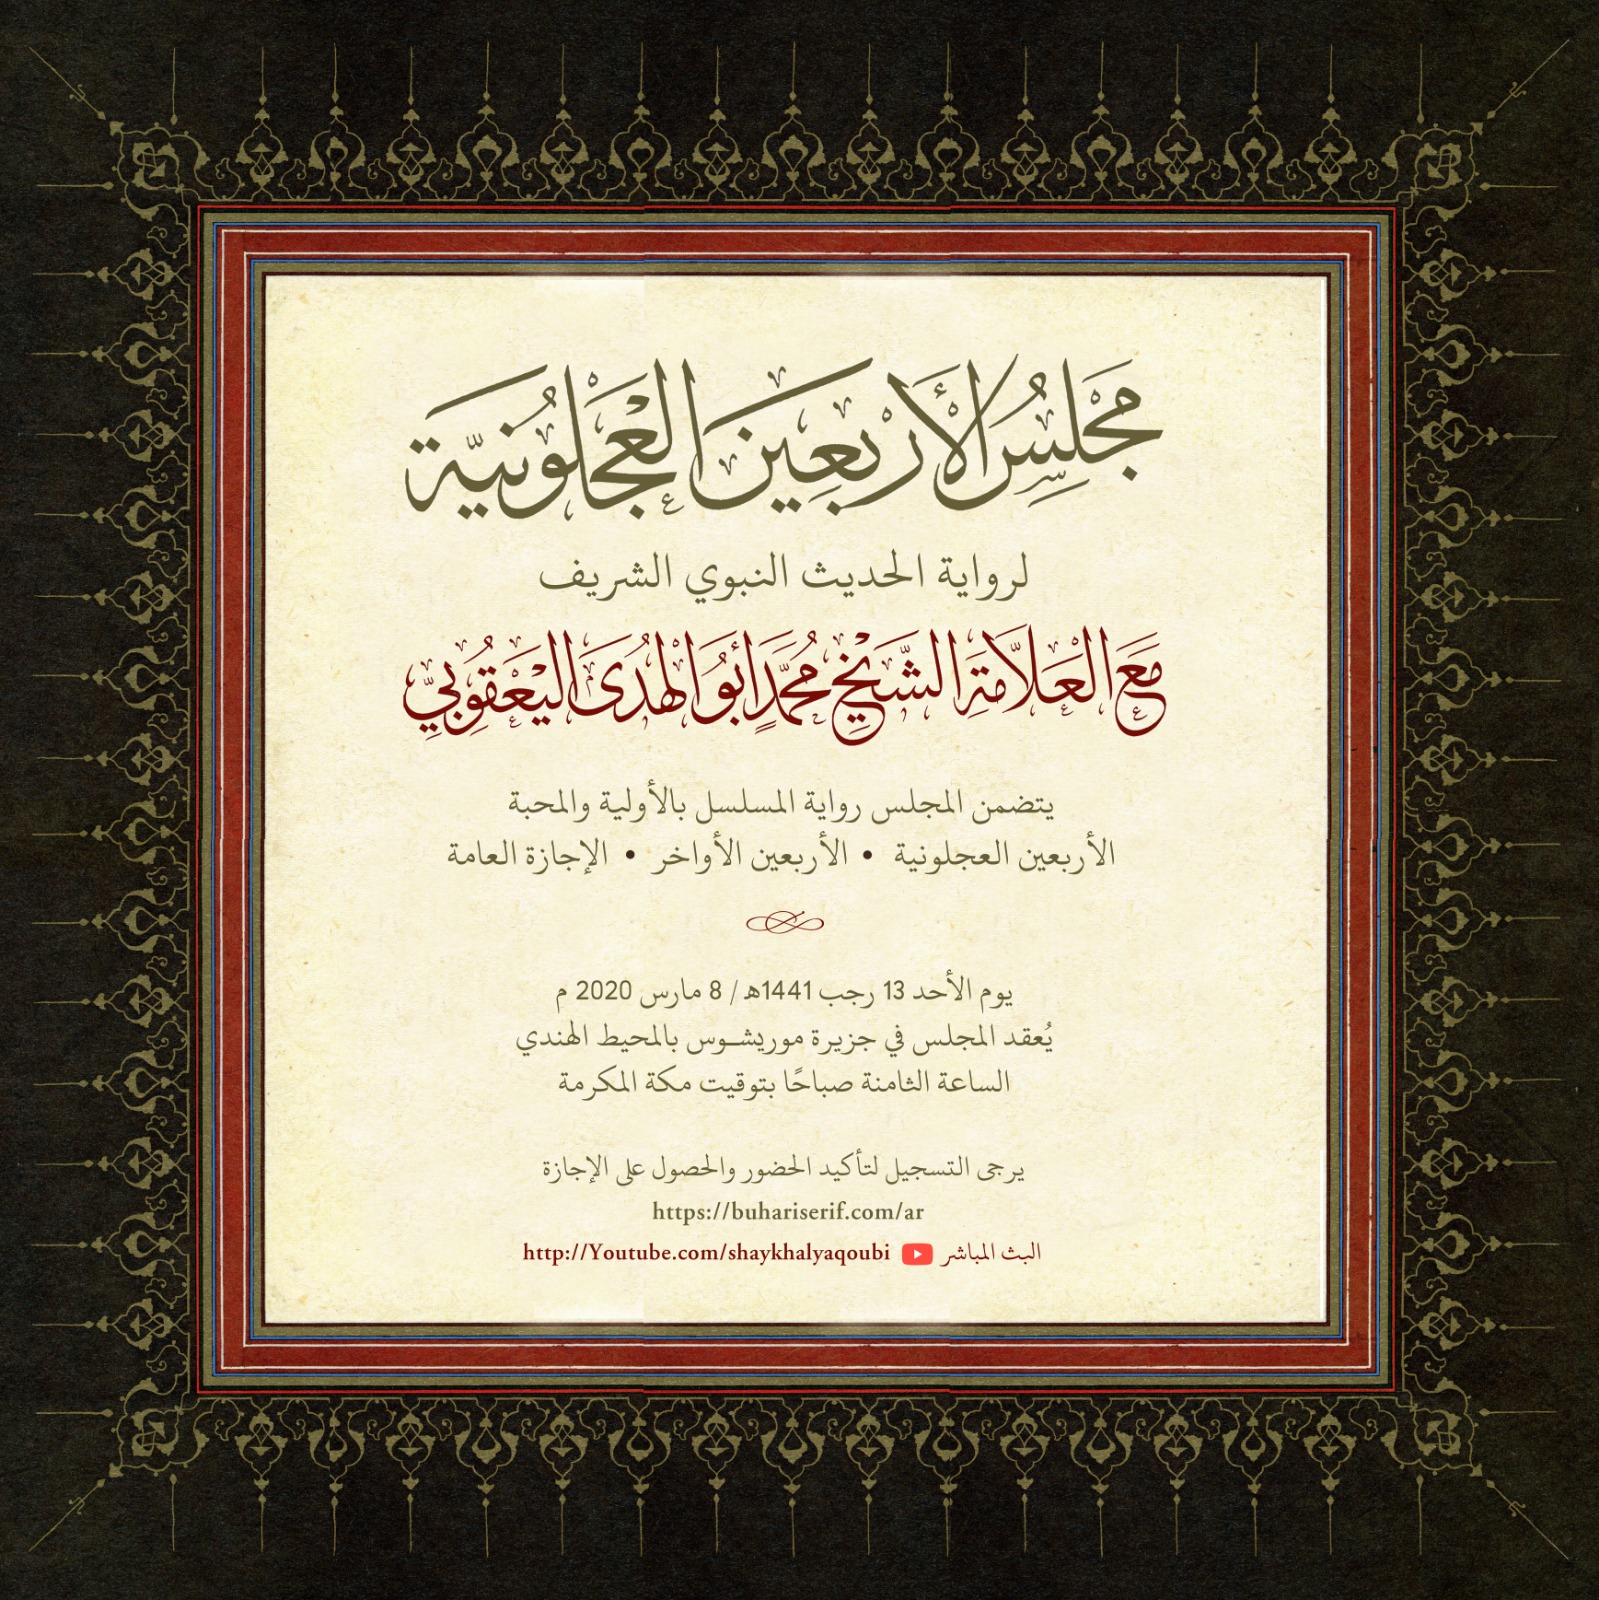 مَجْلِسُ الأَرْبَعِينَ العَجْلُونِيَّة
لرواية الحديث النبوي الشريف
مَعَ العَلاَّمَةِ الشَّيْخِ مُحَمَّد أَبُو الهُدَى اليَعْقُوبِيِّ
يتضمن المجلس رواية المسلسل بالأولية والمحبة
الأربعين العجلونية • الأربعين الأواخر • الإجازة العامة
يوم الأحد 13 رجب 1441هـ / 8 مارس 2020 م
يُعقد المجلس في جزيرة موريشـوس بالمحيط الهندي
الساعة الثامنة صباحًا بتوقيت مكة المكرمة
يرجى التسجيل لتأكيد الحضور والحصول على الإجازة
https://buhariserif.com/ar
البث المباشر http://Youtube.com/shaykhalyaqoubi